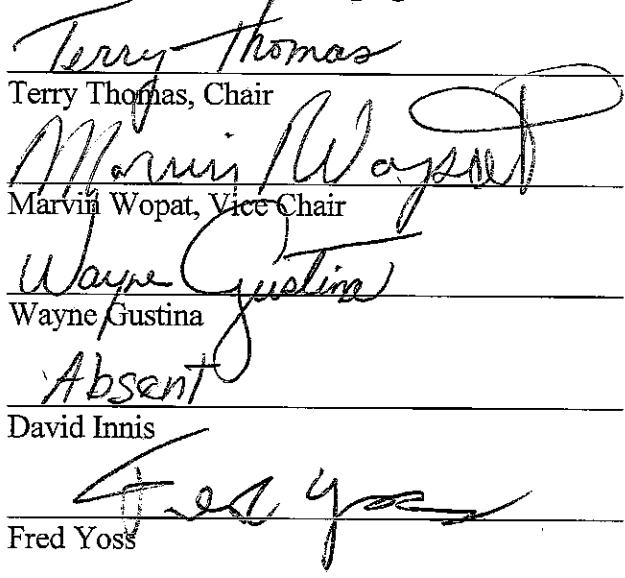 Terry Thomas
Terry Thomas, Chair
Marvin Wopat
Marvin Wopat, Vice Chair
Wayne Gustina
Wayne Gustina
Absent
David Innis
Fred Yoss
Fred Yoss